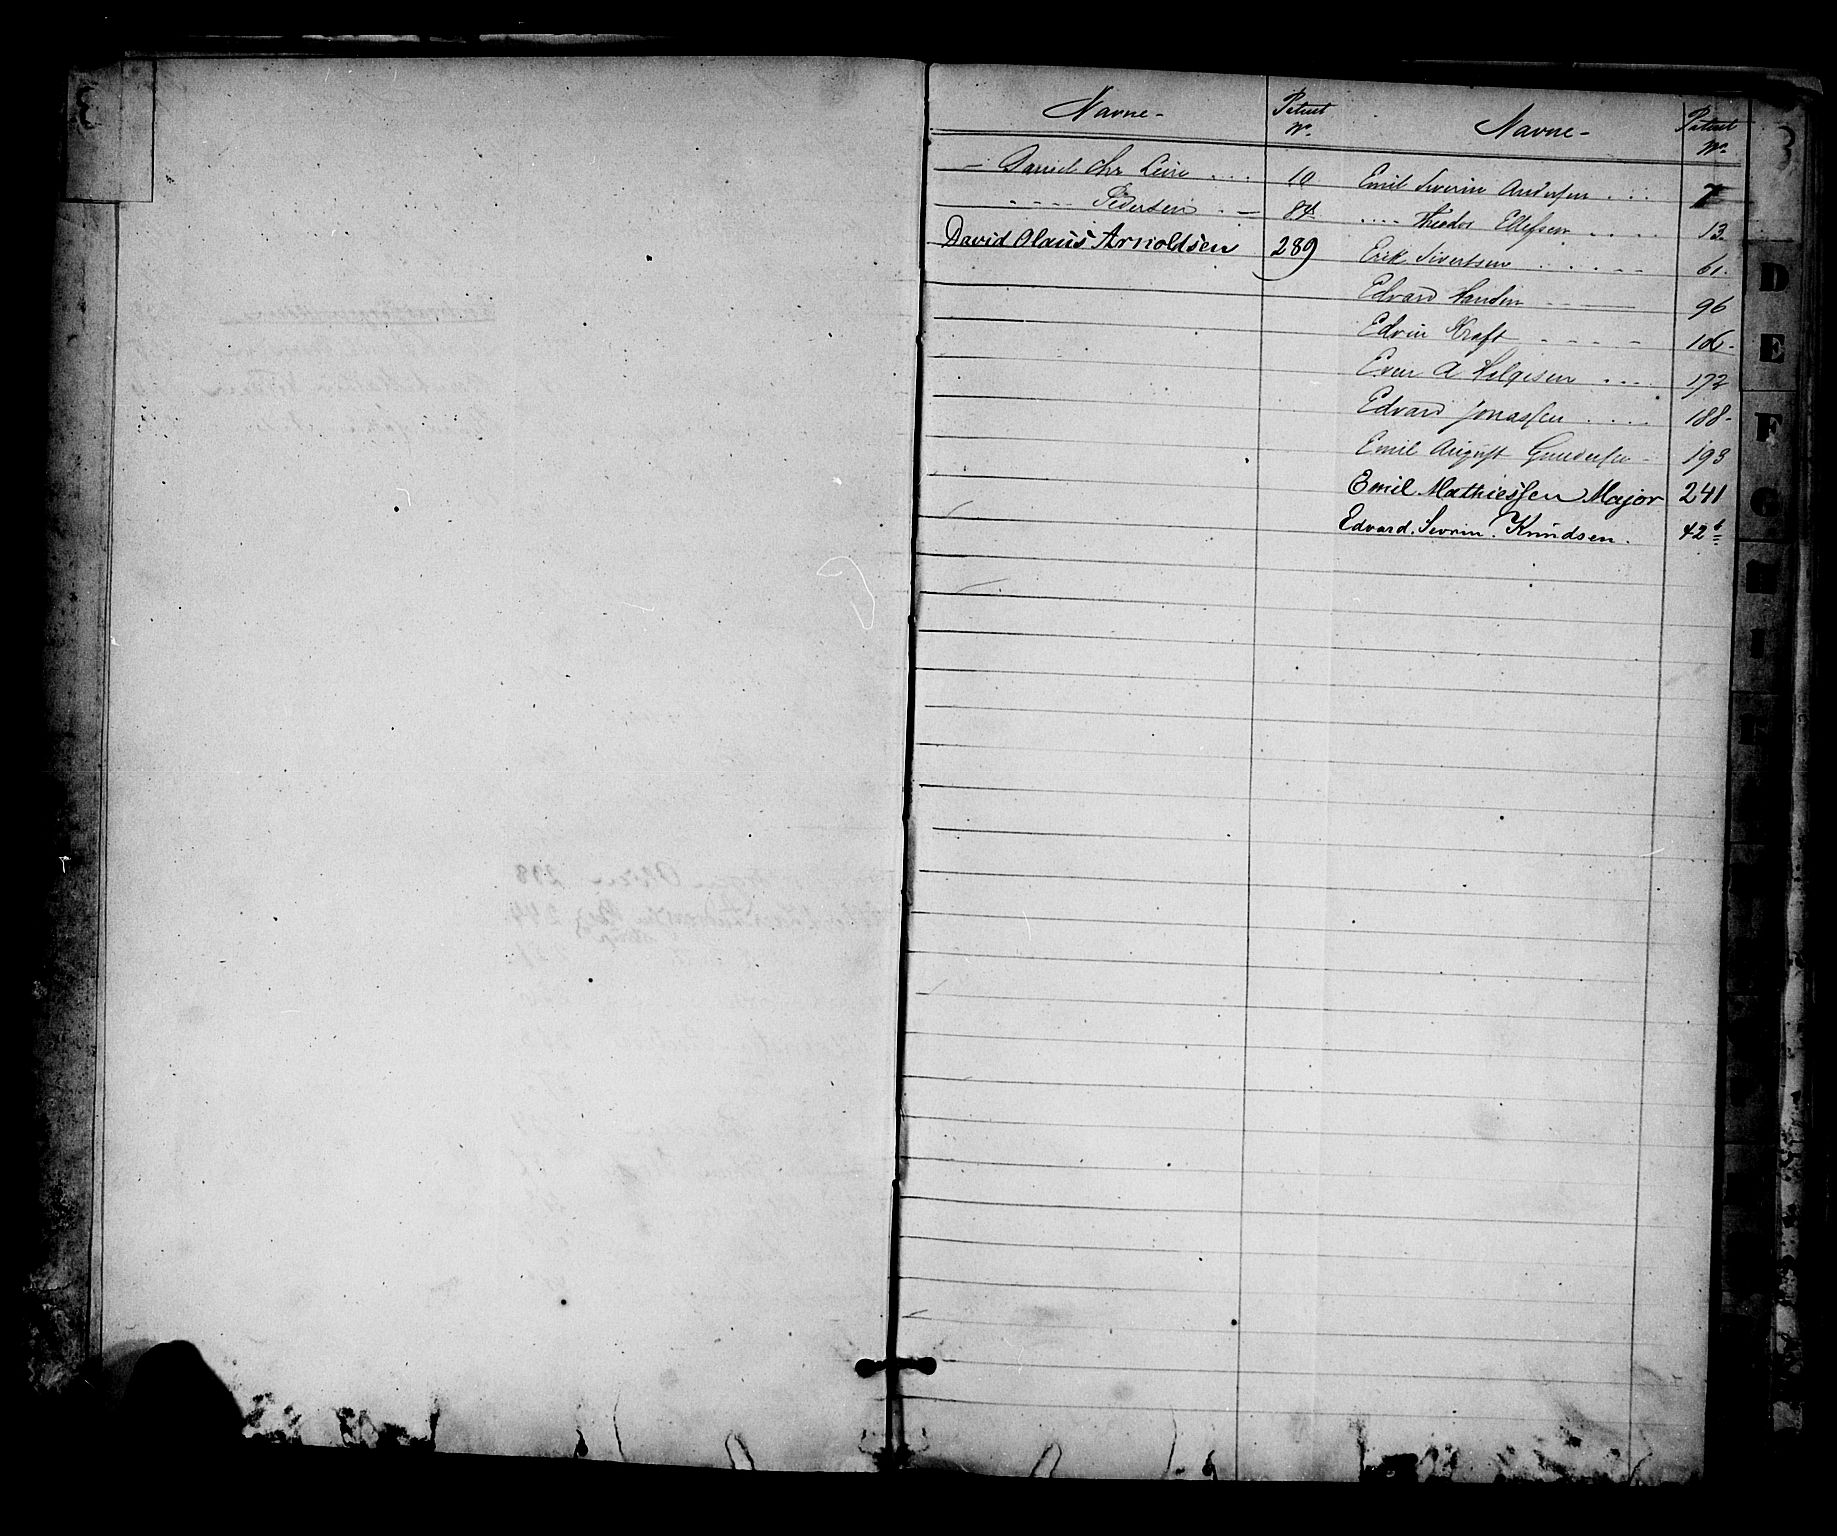 Navne - Patent Nr. Navne - Patent Nr.
— Daniel Chr Leire . . . 10
- - - - Pedersen . — 84
David Olaus Arnoldsen 289
Emil Severin Andersen . . . 7
. . . . Theodor Ellefsen . . . . 13
Erik Sivertsen . . . . . 61.
Edvard Hansen - - — 96
Edvin Kraft - - - - - 106-
Even A Helgesen . . . . 172
Edvard Jonassen . . . . 188-
Emil August Gundersen - 193
Emil Mathiessen Major 241
Edvard. Sevrin. Knudsen. 42 b
3
D
E
F
G
H
I